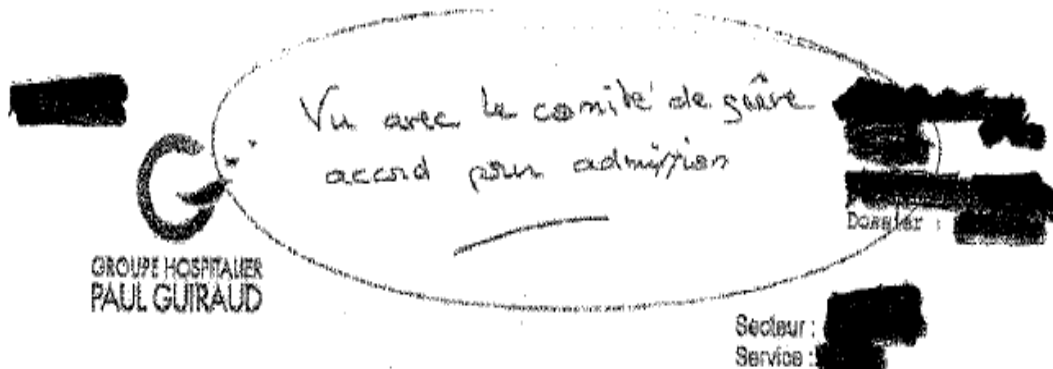 Vu avec le comité de grève
accord pour admission
Dossier :
GROUPE HOSPITALIER
PAUL GUIRAUD
Secteur :
Service :